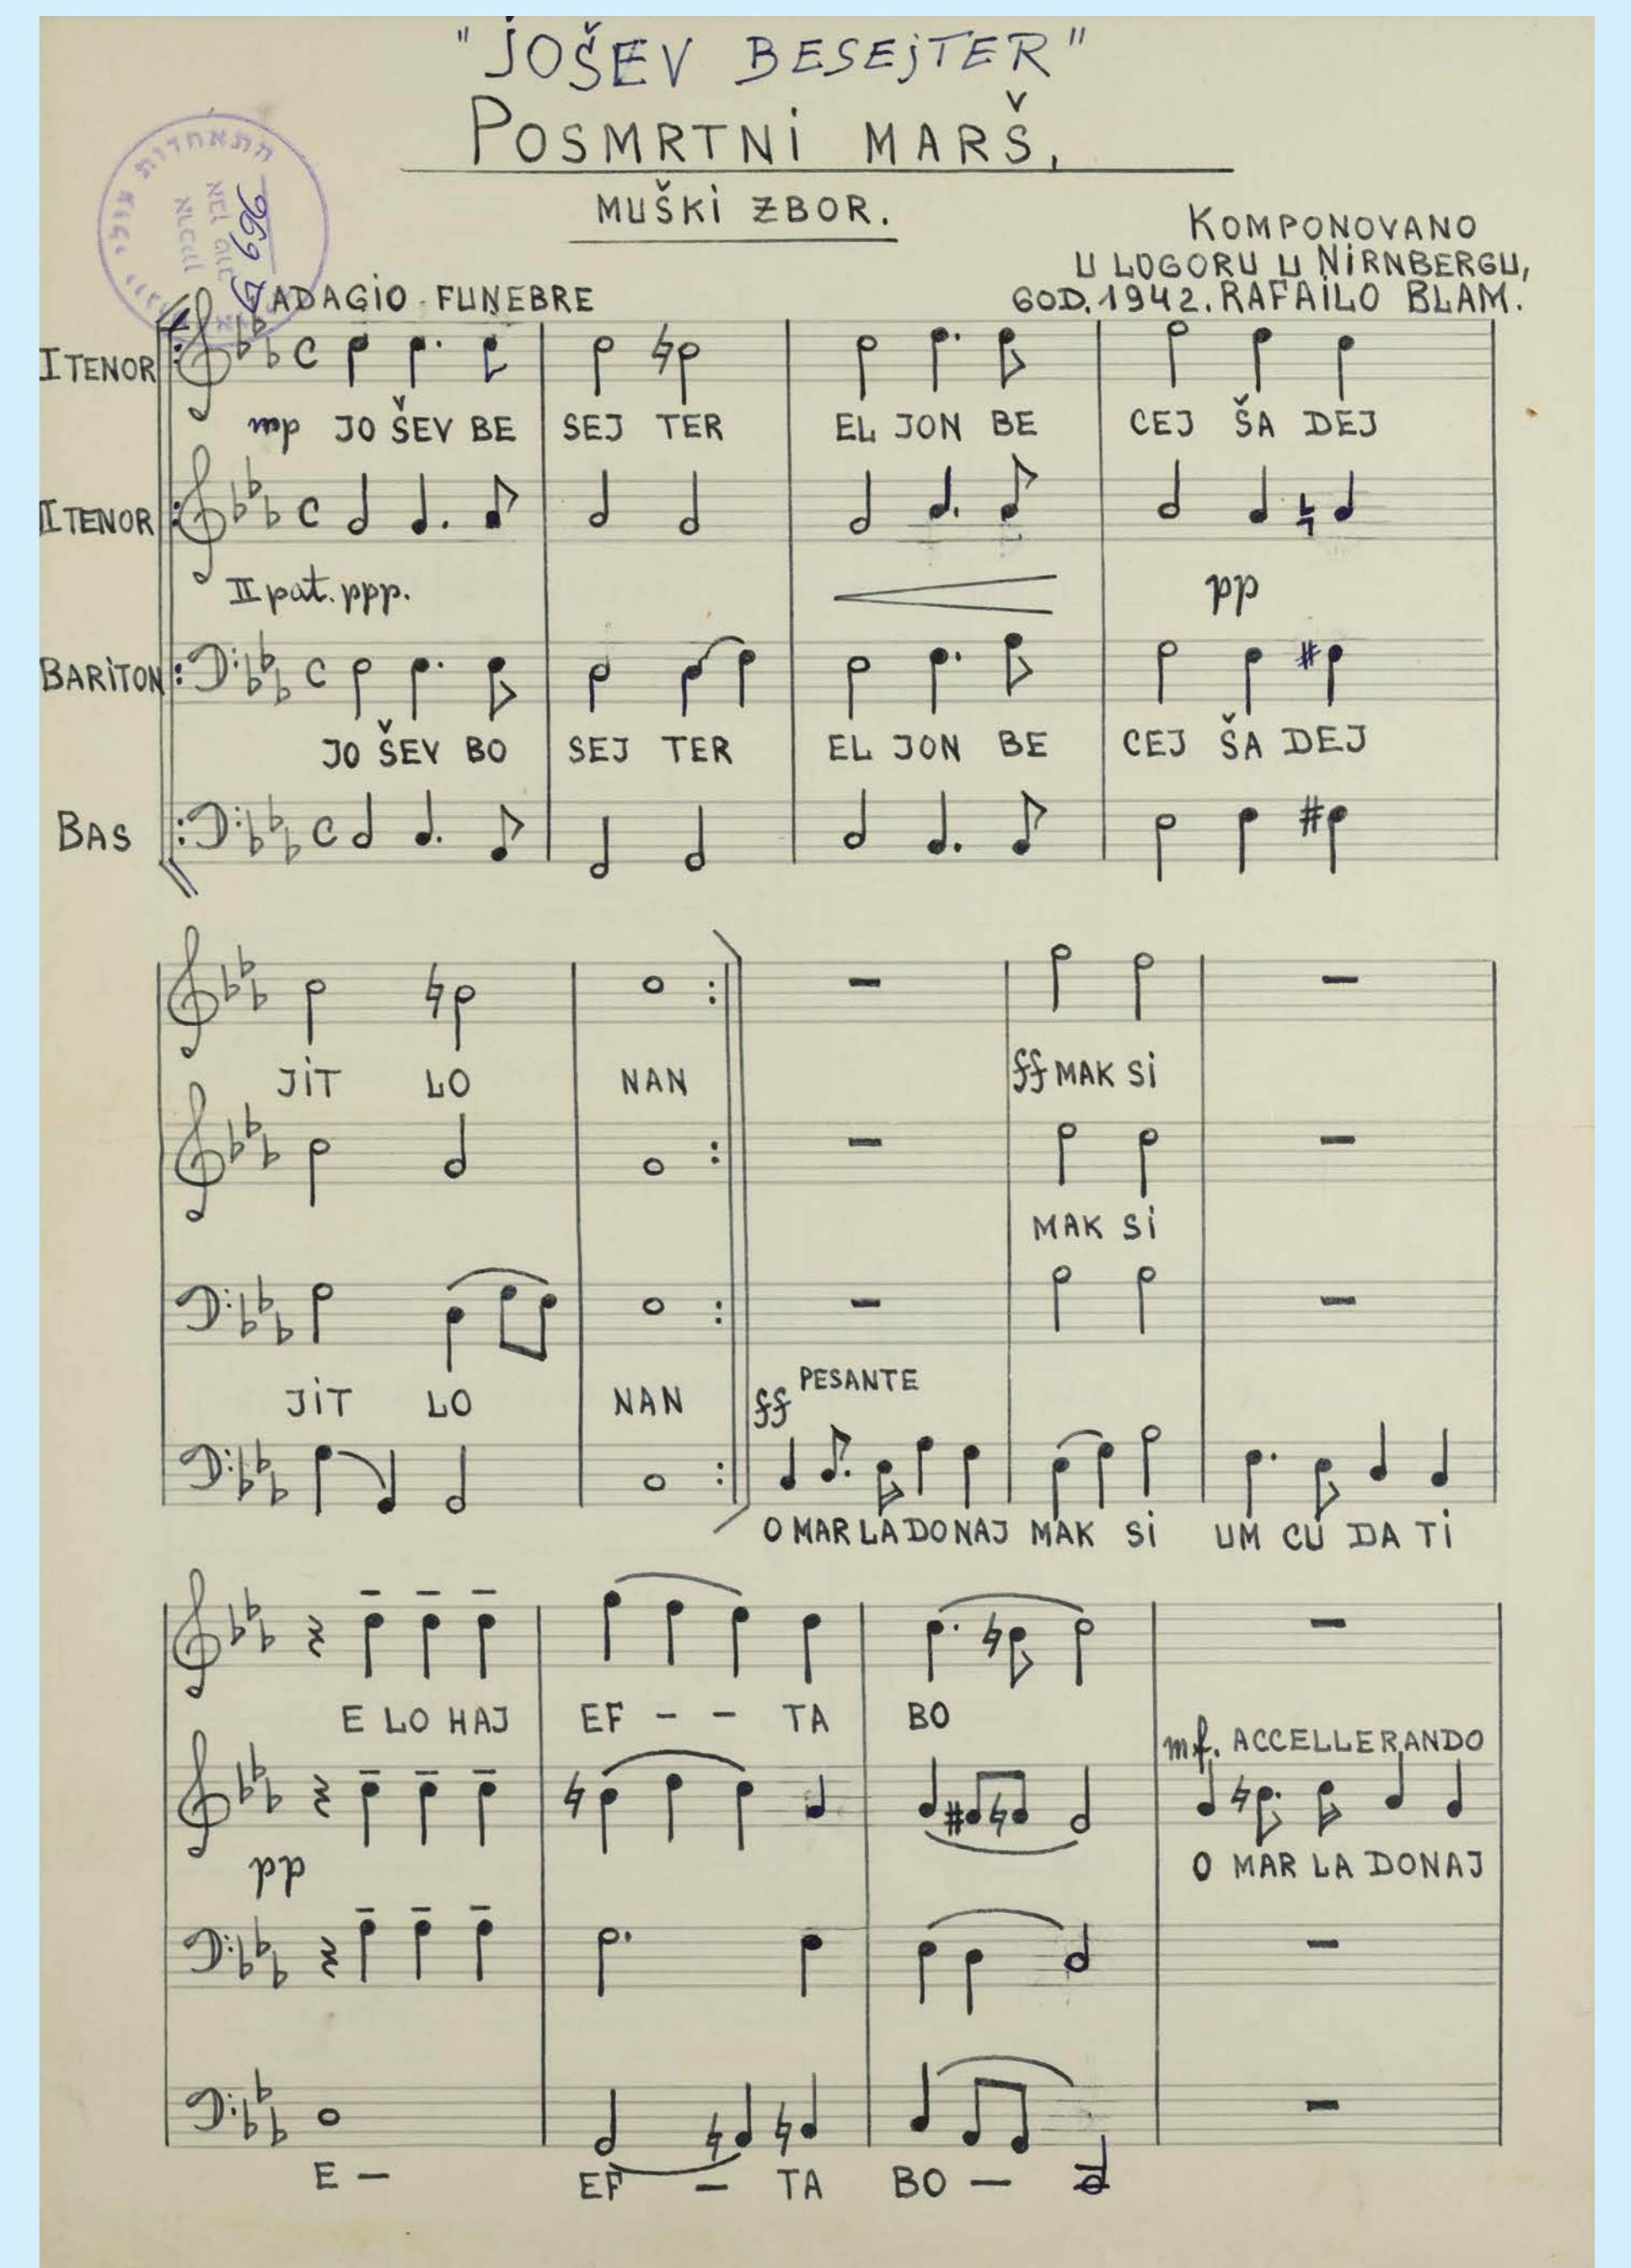 "JOŠEV BESEJTER"
POSMRTNI MARŠ.
MUŠKI ZBOR.
KOMPONOVANO
U LOGORU U NIRNBERGU,
GOD. 1942. RAFAILO BLAM.
התאחדות עולי
969
ADAGIO FUNEBRE
I TENOR
mp JO ŠEV BE SEJ TER EL JON BE CEJ ŠA DEJ
II TENOR
II pat. ppp. pp
BARITON
JO ŠEV BO SEJ TER EL JON BE CEJ ŠA DEJ
BAS
JIT LO NAN ff MAK SI
MAK SI
PESANTE
JIT LO NAN ff
O MAR LA DONAJ MAK SI UM CU DA TI
E LO HAJ EF - - TA BO
mf. ACCELLERANDO
pp O MAR LA DONAJ
E - EF - TA BO -